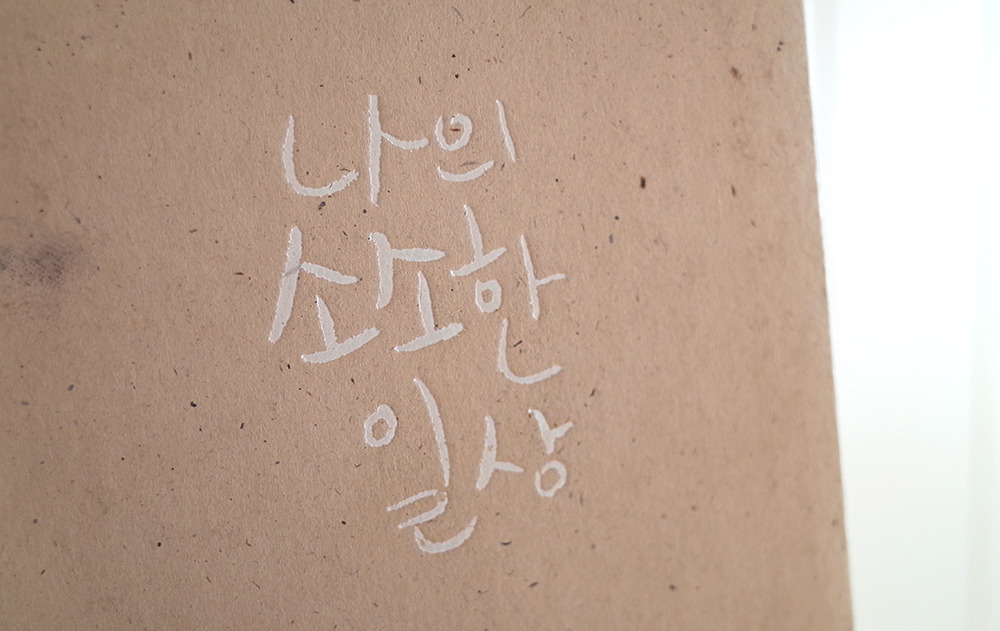 나의
소소한
일상